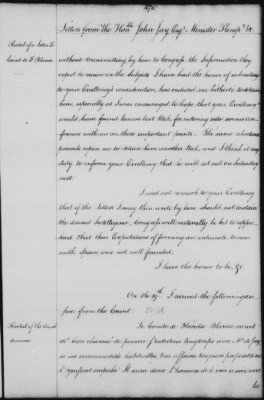 Letters from the Honble John Jay Esqr Minister Plenipy &c
Recital of a Letter to
Count de F. Blanca
without transmitting by him to Congress the Information they
expect to receive on the Subjects I have had the honor of submitting
to your Excellency's consideration, has induced me hitherto to detain
him, especially as I was encouraged to hope that your Excellency
would have found leisure last Week, for entering into some con-
ference with me on these important points. The same reasons
prevade upon me to detain him another Week, and I think it my
duty to inform your Excellency that he will set out on Saturday
next.
I need not remark to your Excellency
that if the Letters I may then write by him should not contain
the desired Intelligence, Congress will naturally be led to appre-
hend that their Expectations of forming an intimate Union
with Spain, were not well founded.
I have the honor to be &c.
On the 19th I received the following an-
swer from the Count.
Recital of the Counts
answer
Le Comte de Florida Blanca auroit
eté bien charmé de pouvoir s'entretenir longtemps avec Mr de Jay